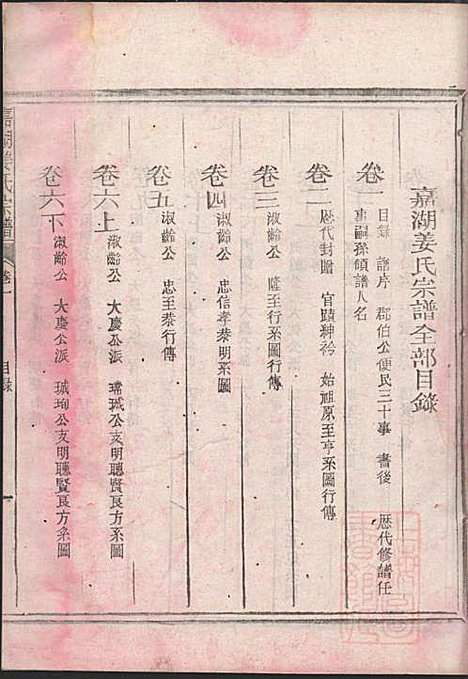 嘉湖姜氏宗譜全部目錄
卷一
目錄 譜序 郡伯公便民三十事 書後 歷代修譜任
事嗣孫領譜人名
卷二
歷代封贈 官蹟紳衿 始祖原至亨系圖行傳
卷三
淑齡公 隆至行系圖行傳
卷四
淑齡公 忠信孝恭明系圖
卷五
淑齡公 忠至恭行傳
卷六上
淑齡公 大慶公派 公支明聽賢良方系圖
卷六下
淑齡公 大慶公派 珹珣公支明聽賢良方系圖
嘉湖姜氏宗譜 卷一 目錄 一